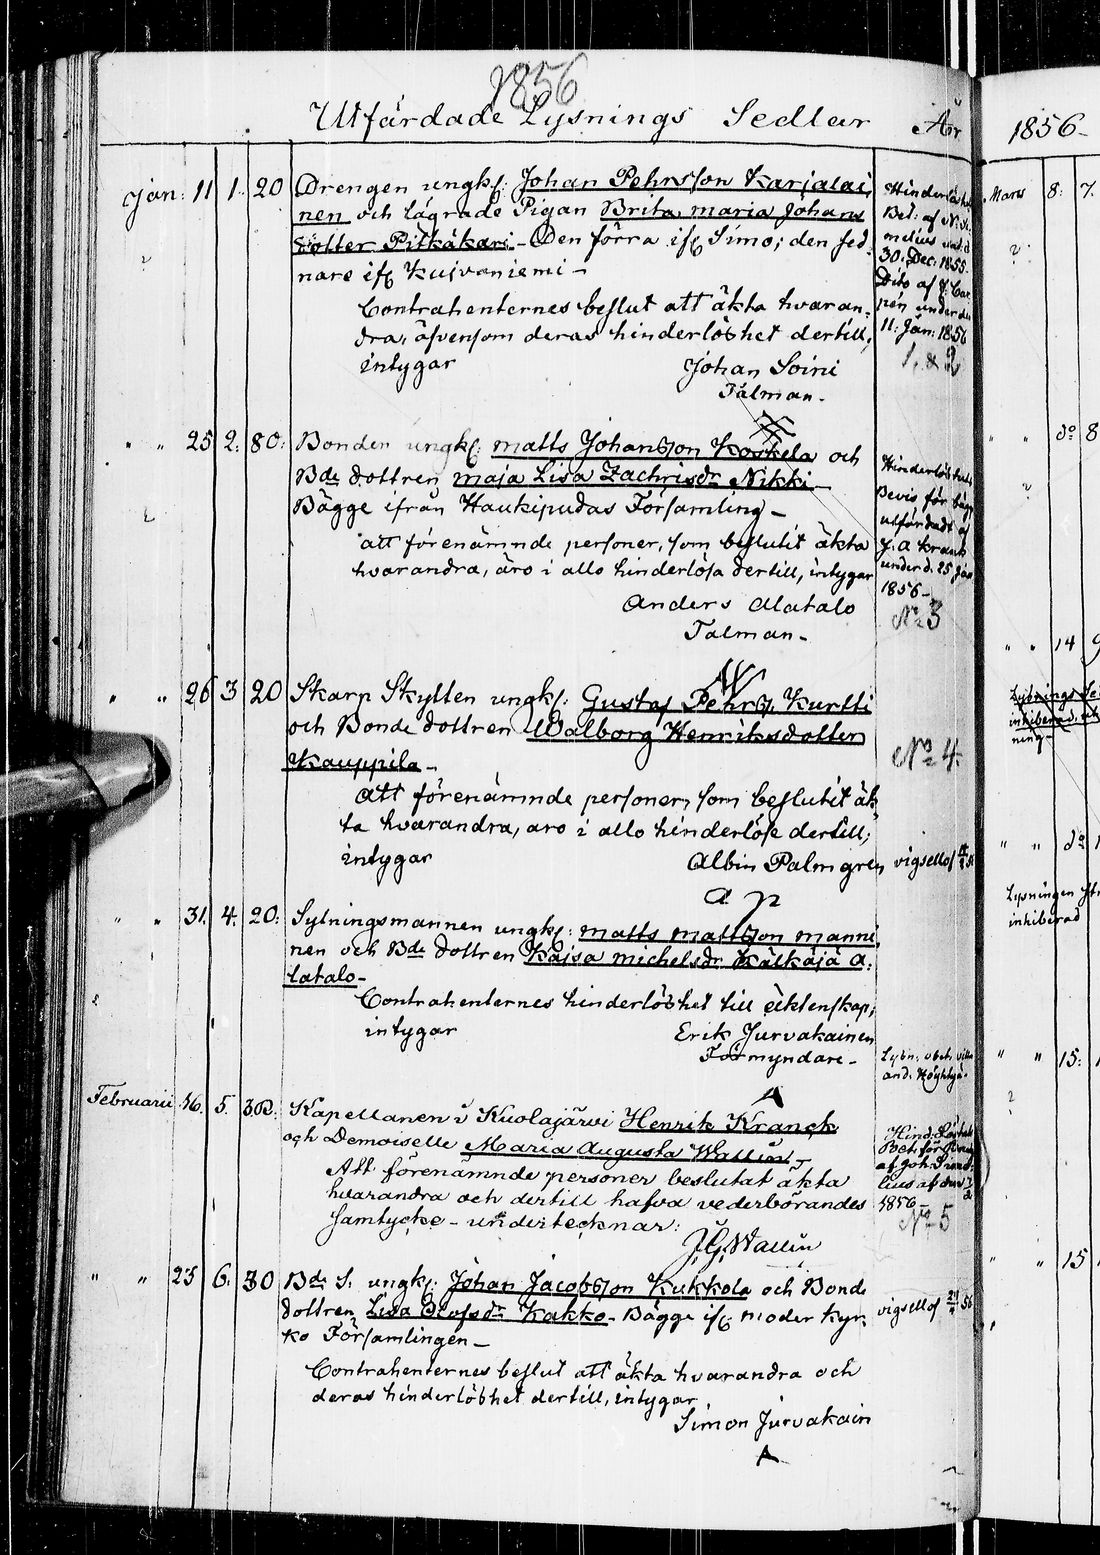 1856
Utfärdade Lysnings Sedlar År 1856-
Jan: 11 1. 20 Drengen ungk: Johan Pehrsson Karjalai
nen och lägrade Pigan Brita Maria Johans
dotter Pitkäkari - Den förra ifr Simo; den sed
nare ifr Kuivaniemi -
Contrahenternes beslut att äkta hvaran-
dra, äfvensom deras hinderlöshet dertill,
intygar Johan Soini
Talman-
Bet: af N: Si
melius und: d
30: Dec: 1855-
Dito af J: Cas
pén under den
11: Jan: 1856
1. & 2
" " 25 2. 80: Bonden ungk: Matts Johansson Koskela och
Bde dottren Maja Lisa Zachrisdr Nikki-
Bägge ifrån Haukipudas Församling-
att förenämnde personer, som beslutit äkta
hvarandra, äro i allo hinderlösa dertill, intygar
Anders Alatalo
Talman-
Hinderlöshets
Bevis för bägge
utfärdadt af
J. A Krank
under d. 25 Jan
1856-
No 3
" " 26 3 20 Skarp Skytten ungk: Gustaf Pehrss. Kurtti
och Bonde dottren Walborg Henriksdotter
Kauppila-
Att förenämnde personer, som beslutit äk
ta hvarandra, äro i allo hinderlöse dertill,
intygar Albin Palmgren
No 4.
vigsellof
" " 31. 4. 20: Sytningsmannen ungk: Matts Mattsson Manni
nen och Bde dottren Kajsa Michelsdr Kälkäjä A:
latalo-
Contrahenternes hinderlöshet till äktenskap,
intygar Erik Jurvakainen
Förmyndare-
Februarii 16. 5. 30: Kapellanen i Kuolajärvi Henrik Kranck
och Demoiselle Maria Augusta Wallin-
Att förenämnde personer beslutat äkta
hvarandra och dertill hafva vederbörandes
samtycke - undertecknar:
J. G. Wallin
1856-
No 5
" " 23 6. 30 Bde S. ungk: Johan Jacobsson Kukkola och Bonde
dottren Lisa Olofsdr Kakko- Bägge ifr moder kyr-
ko Församlingen-
Contrahenternes beslut att äkta hvarandra och
deras hinderlöshet dertill, intygar
Simon Jurvakain
vigsellof
Mars 8: 7.
" " do 8
" " 14 9
Lysnings Se
inhiberad,
ning-
" " do 1
Lysningen
inhiberad
" " 15:
" " 15